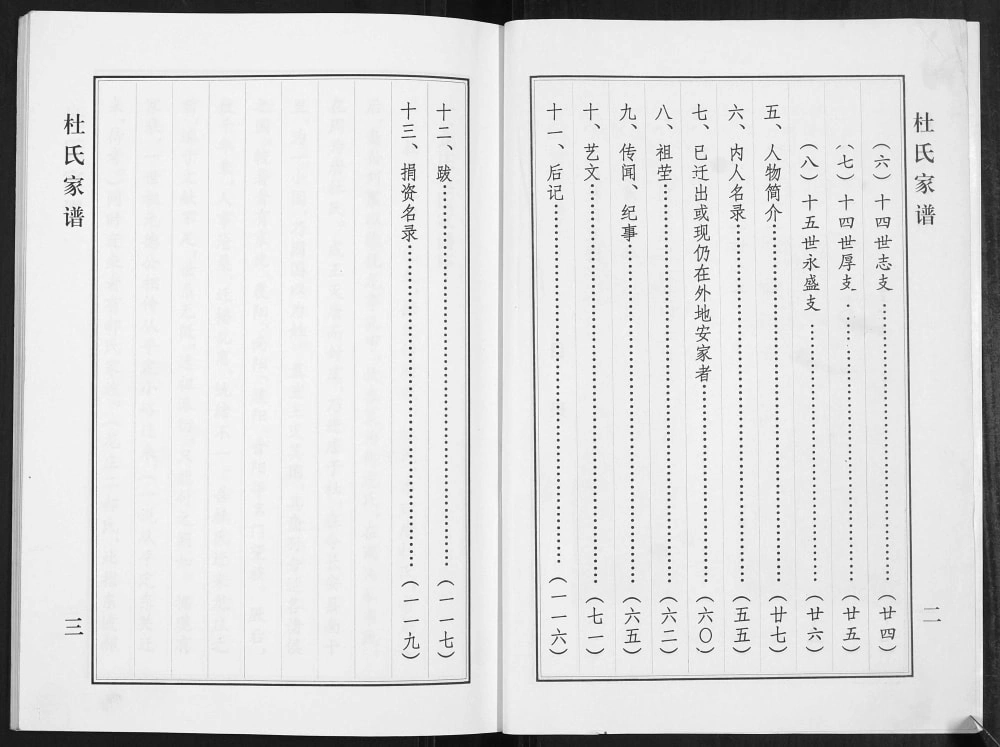 杜氏家谱
（六）十四世志支………（廿四）
（七）十四世厚支………（廿五）
（八）十五世永盛支………（廿六）
五、人物简介………（廿七）
六、内人名录………（五五）
七、已迁出或现仍在外地安家者………（六〇）
八、祖茔………（六二）
九、传闻、纪事………（六五）
十、艺文………（七一）
十一、后记………（一一六）
二
十二、跋………（一一七）
十三、捐资名录………（一一九）
杜氏家谱
三